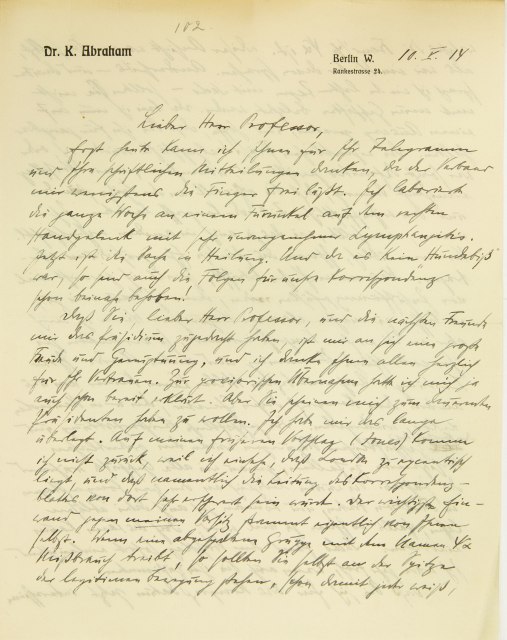 102.
Dr. K. Abraham
Berlin W. 10. V. 14
Rankestrasse 24.
Lieber Herr Professor,
erst heute kann ich Ihnen für Ihr Telegramm
und Ihre schriftlichen Mitteilungen danken, da der Verband
mir wenigstens die Finger frei läßt. Ich laborierte
die ganze Woche an einem Furunkel auf dem rechten
Handgelenk mit sehr unangenehmer Lymphangitis.
Jetzt ist die Sache in Heilung. Und da es kein Hundebiß
war, so sind auch die Folgen für unsre Korrespondenz
schon beinah behoben.
Daß Sie, lieber Herr Professor, und die nächsten Freunde
mir das Präsidium zugedacht haben, ist mir an sich eine große
Freude und Genugtuung, und ich danke Ihnen allen herzlich
für Ihr Vertrauen. Zur provisorischen Übernahme hatte ich mich ja
auch schon bereit erklärt. Aber Sie scheinen mich zum dauernden
Präsidenten haben zu wollen. Ich habe mir das lange
überlegt. Auf meinen früheren Vorschlag (Jones) komme
ich nicht zurück, weil ich einsehe, daß London zu exzentrisch
liegt, und daß namentlich die Leitung des Korrespondenz-
blattes von dort sehr erschwert sein würde. Der wichtigste Ein-
wand gegen meinen Vorsitz stammt eigentlich von Ihnen
selbst. Wenn eine abgefallene Gruppe mit dem Namen ΨA
Mißbrauch treibt, so sollten Sie selbst an der Spitze
der legitimen Bewegung stehen, schon damit jeder weiß,